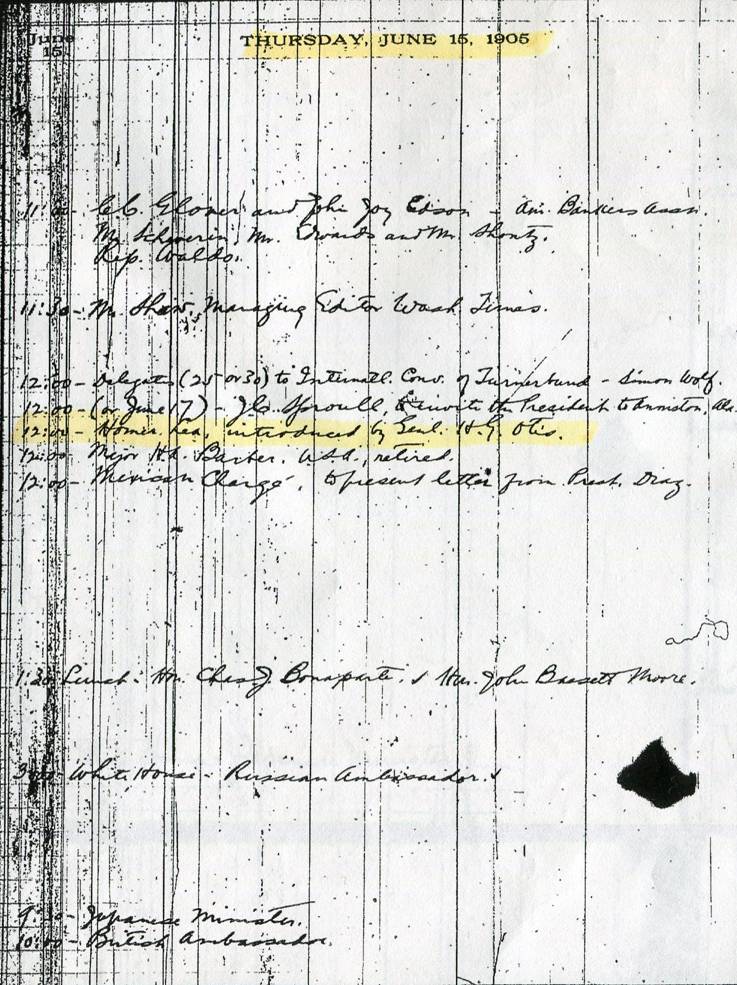 June
15
THURSDAY, JUNE 15, 1905
11:00 - C.C. Glover and John Joy Edson - Am. Bankers Assn.
Mr. Schwerin, Mr. Edwards and Mr. Shontz.
Rep. Waldo.
11:30 - Mr. Shaw, Managing Editor Wash Times.
12:00 - Delegates (25 or 30) to Internatl. Conv. of Turnerbund - Simon Wolf.
12:00 - (or June 17) - Sproull, to invite the President to Anniston, Ala.
12:00 - Homer Lea, introduced by Genl. H.G. Otis.
12:00 - Major Barber, U.S.A., retired.
12:00 - Mexican Chargé, to present letter from Prest. Diaz.
1:30 Lunch: Hon. Chas J. Bonaparte. & Hon. John Bassett Moore.
3:00 - White House - Russian Ambassador.
9:30 - Japanese Minister.
10:00 - British Ambassador.